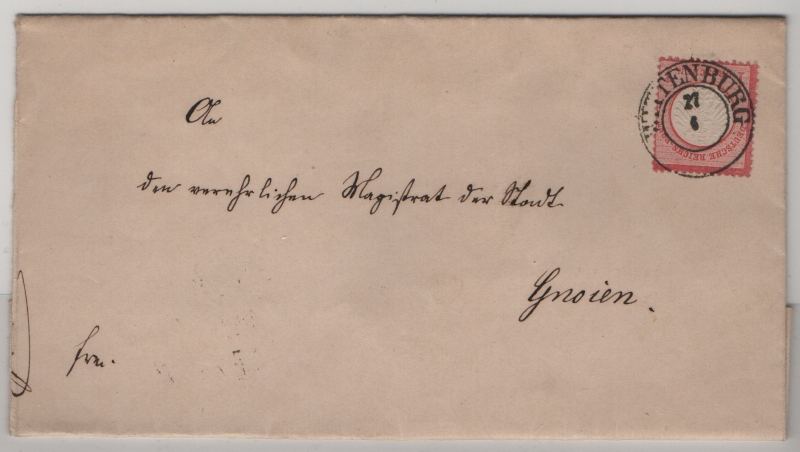 WITTENBURG
27
6
DEUTSCHE REICHS-PO
An
den verehrlichen Magistrat der Stadt
Gnoien.
frei.